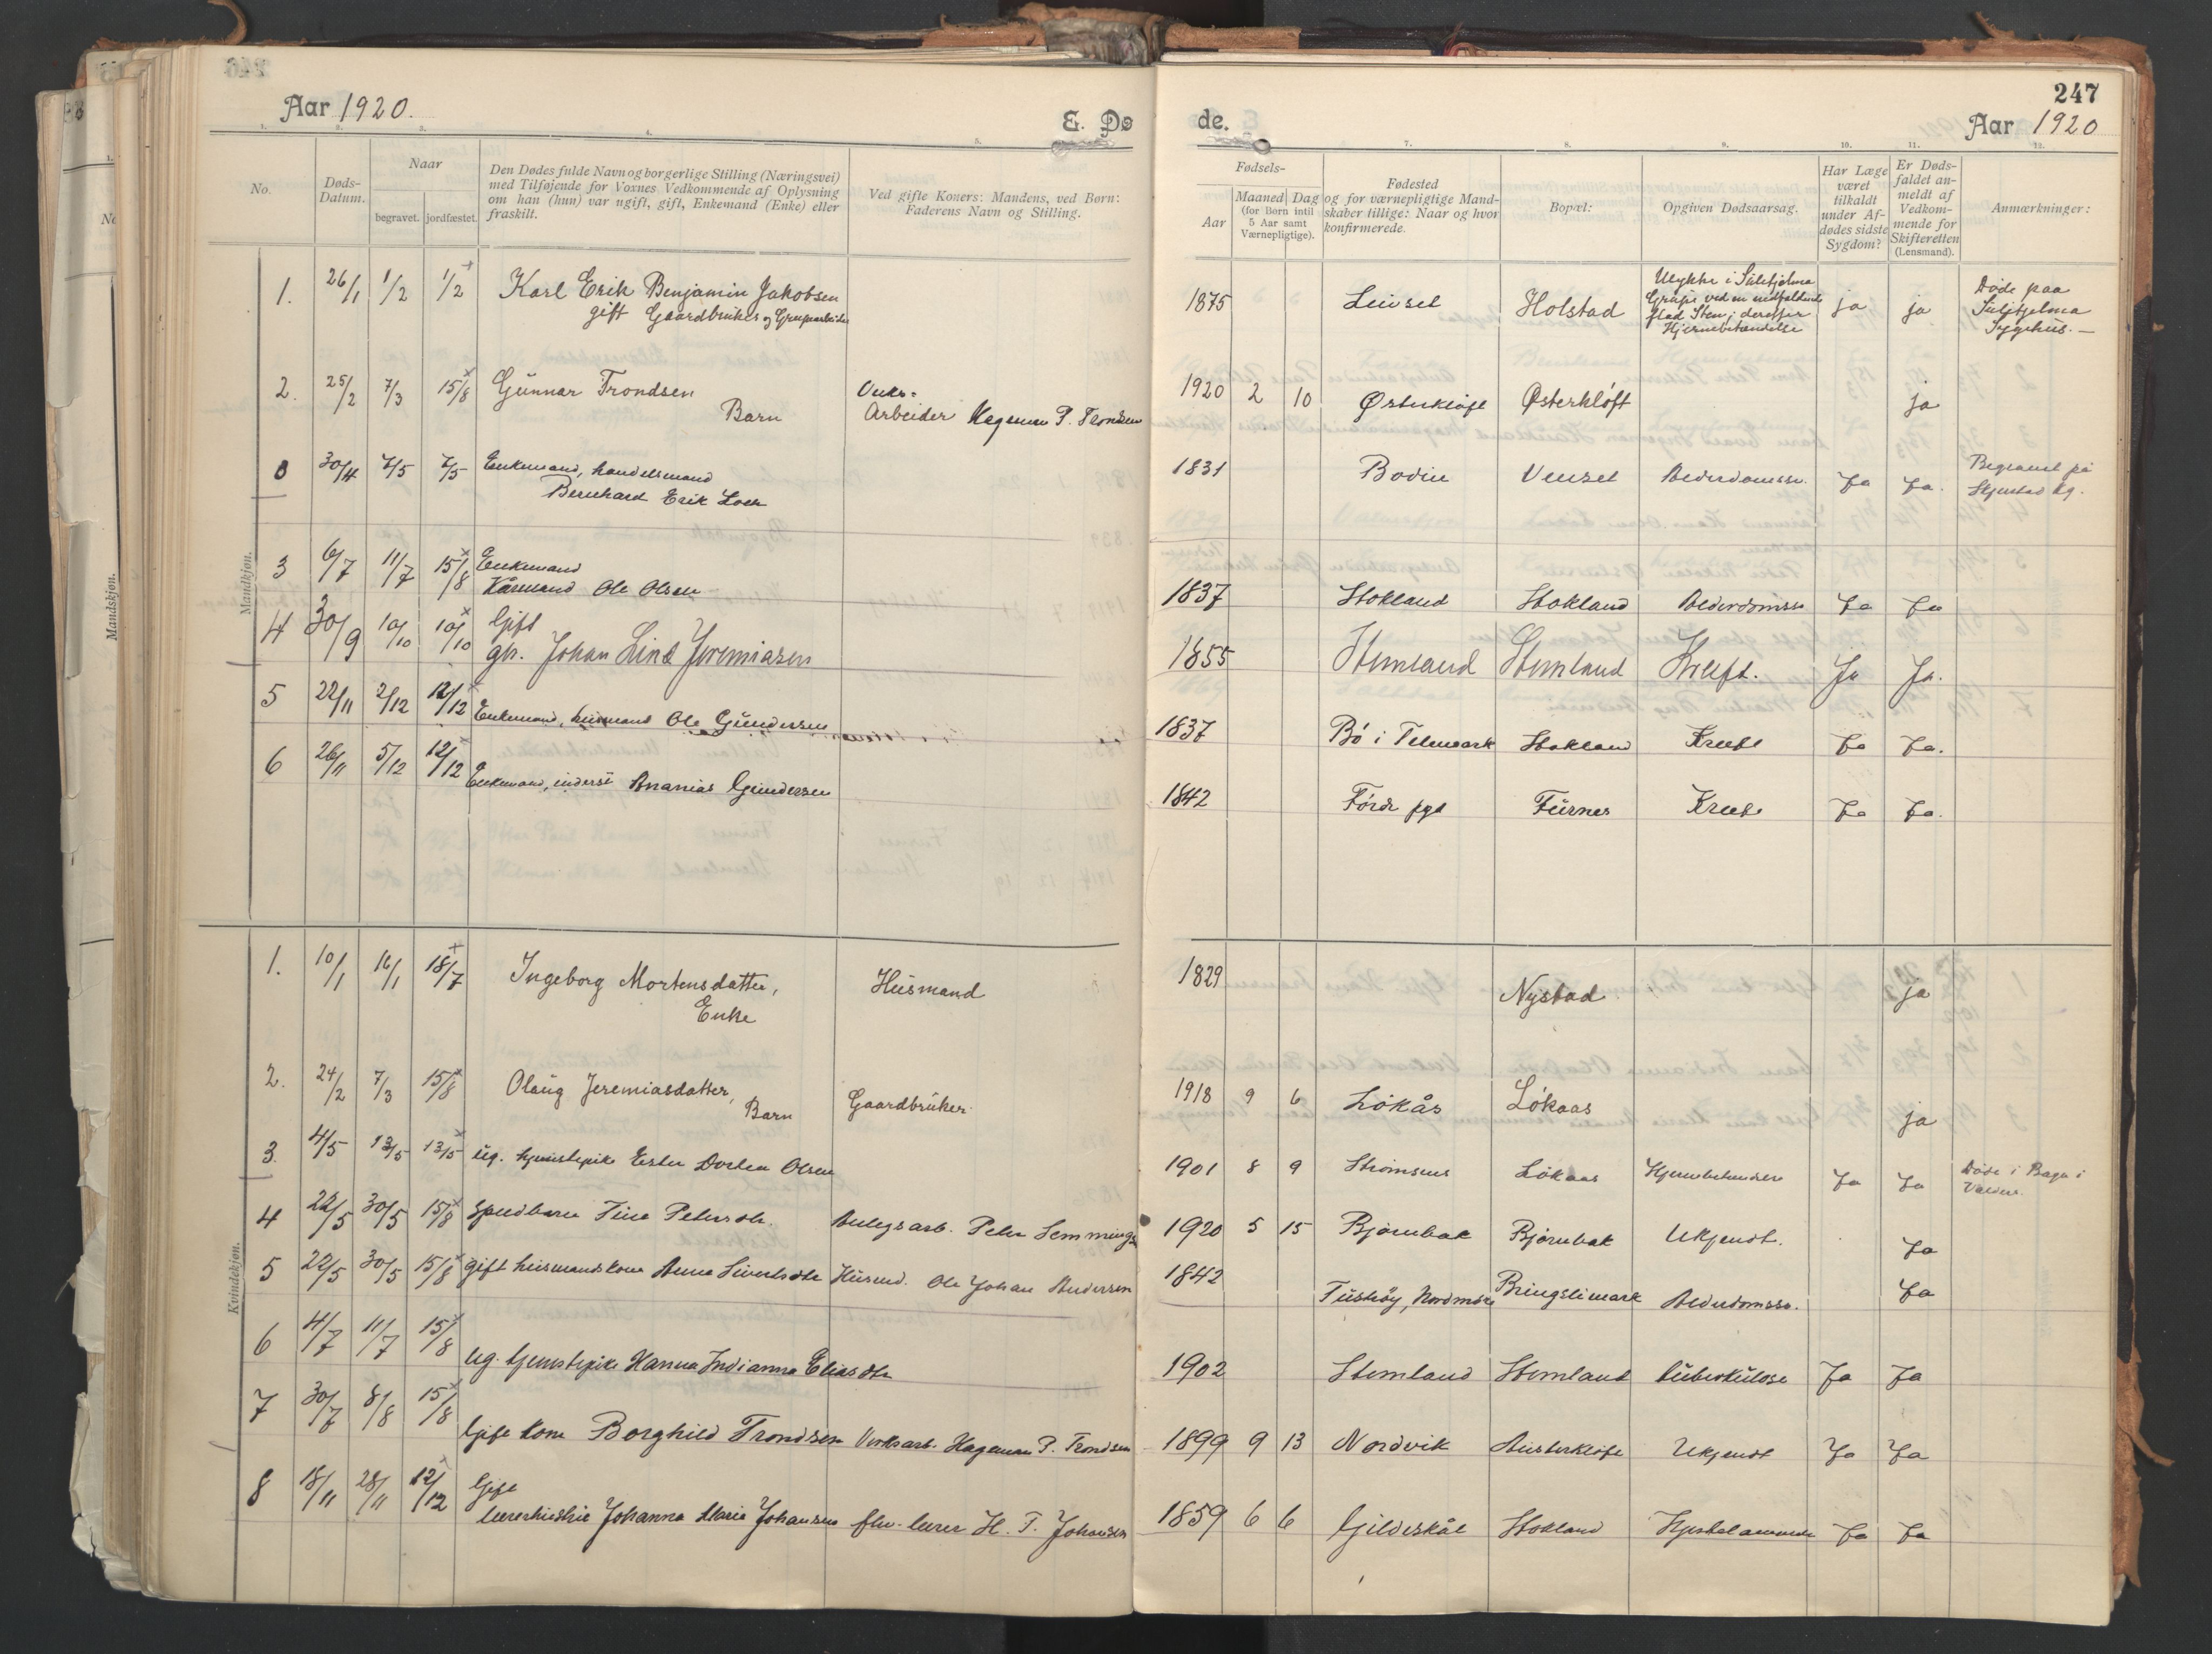 247
Aar 1920.
E. Dø
de.
Aar 1920
1. 2. 3. 4. 5.
7. 8. 9. 10. 11. 12.
No.
Døds-
Datum.
Naar
begravet. jordfæstet.
Den Dødes fulde Navn og borgerlige Stilling (Næringsvei)
med Tilføjende for Voxnes Vedkommende af Oplysning
om han (hun) var ugift, gift, Enkemand (Enke) eller
fraskilt.
Ved gifte Koners: Mandens, ved Børn:
Faderens Navn og Stilling.
Fødsels-
Aar
Maaned Dag
(for Børn intil
5 Aar samt
Værnepligtige).
Fødested
og for værnepligtige Mand-
skaber tillige: Naar og hvor
konfirmerede.
Bopæl:
Opgiven Dødsaarsag.
Har Læge
været
tilkaldt
under Af-
dødes sidste
Sygdom?
Er Døds-
faldet an-
meldt af
Vedkom-
mende for
Skifteretten
(Lensmand).
Anmærkninger:
Mandkjøn.
1. 26/1 1/2 1/2 Karl Erik Benjamin Jakobsen
gift Gaardbruker og Grubearbeider
1875 Leivset Holstad
Ulykke i Sulitjelma
Grube ved en nedfaldende
flad Sten; derefter
Hjernebetændelse
ja ja
Døde paa
Sulitjelma
Sygehus. —
2. 25/2 7/3 15/8 Gunnar Trondsen
Barn
Verks-
Arbeider Hageman P. Trondsen
1920 2 10 Østerkløft Østerkløft ja
0 30/4 7/5 7/5 Enkemand, handelsmand
Bernhard Erik Loch
1831 Bodin Venset Alderdomssv. Ja Ja.
Begravet på
Skjerstad kg.
3 6/7 11/7 15/8 Enkemand
Kårmand Ole Olsen
1837 Stokland Stokland Alderdomssv Ja Ja
4 30/9 10/10 10/10 Gift
gbr. Johan Lind Jeremiasen
1855 Stemland Stemland Kræft. Ja Ja.
5 22/11 2/12 12/12 Enkemand, husmand Ole Gundersen
1837 Bø i Telemark Stokland Kreft Ja Ja.
6 26/11 5/12 12/12 Enkemand, inderst Ananias Gundersen
1842 Førde pgd Furnes Kreft Ja Ja.
Kvindekjøn.
1. 10/1 16/1 18/7 Ingeborg Mortensdatter,
Enke
Husmand
1829 Nystad ja
2. 24/2 7/3 15/8 Olaug Jeremiasdatter,
Barn
Gaardbruker
1918 9 6 Løkås Løkaas ja
3. 4/5 13/5 13/5 ug. tjenestepike Ester Dortea Olsen
1901 8 9 Strømsnes Løkaas Hjernebetændelse Ja Ja
Døde i Bagn i
Valdres.
4 22/5 30/5 15/8 Spædbarn Tina Petersdtr. Anlegsarb. Peter Lemmings
1920 5 15 Bjørnbak Bjørnbak Ukjendt. Ja
5 22/5 30/5 15/8 gift husmandskone Anna Sivertsdtr Husmd. Ole Johan Andersen
1842 Tustrøy, Nordmøre Bringslimark Alderdomssv. Ja
6 4/7 11/7 15/8
ug. tjenestepike Hanna Indianna Eliasdtr
1902 Stemland Stemland tuberkulose Ja Ja
7 30/7 8/8 15/8
Gift kone Borghild Trondsen Verksarb. Hageman P. Trondsen
1899 9 13 Nordvik Austerkløft Ukjendt Ja Ja
8 18/11 28/11 12/12 Gift
lærerhustru Johanna Marie Johansen fhv. lærer H. T. Johansen
1859 6 6 Gildeskål Stokland Ja Ja
Mandskjøn.